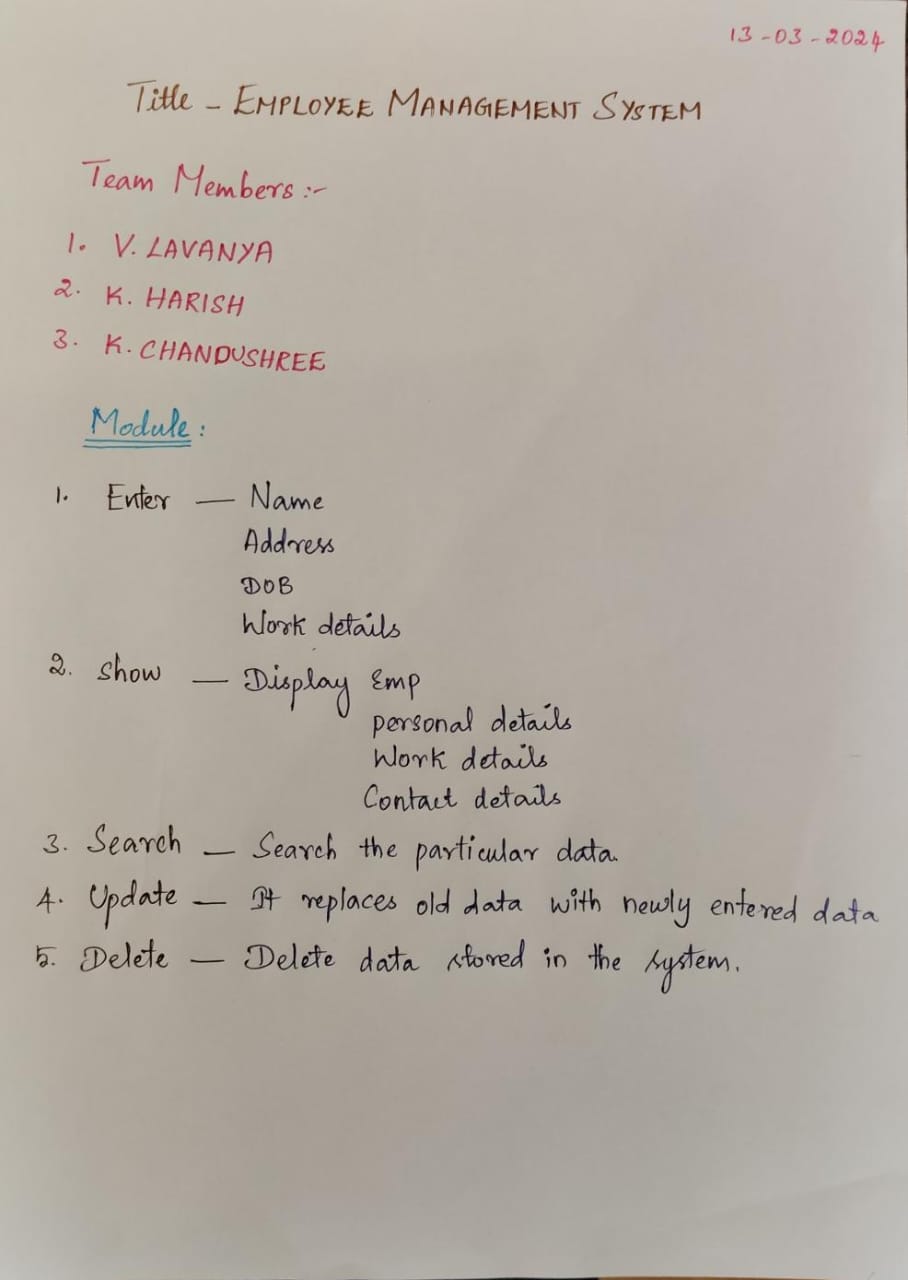 13-03-2024
Title - EMPLOYEE MANAGEMENT SYSTEM
Team Members :-
1. V. LAVANYA
2. K. HARISH
3. K. CHANDUSHREE
Module :
1. Enter — Name
Address
DOB
Work details
2. Show — Display Emp
personal details
Work details
Contact details
3. Search — Search the particular data.
4. Update — It replaces old data with newly entered data
5. Delete — Delete data stored in the system.